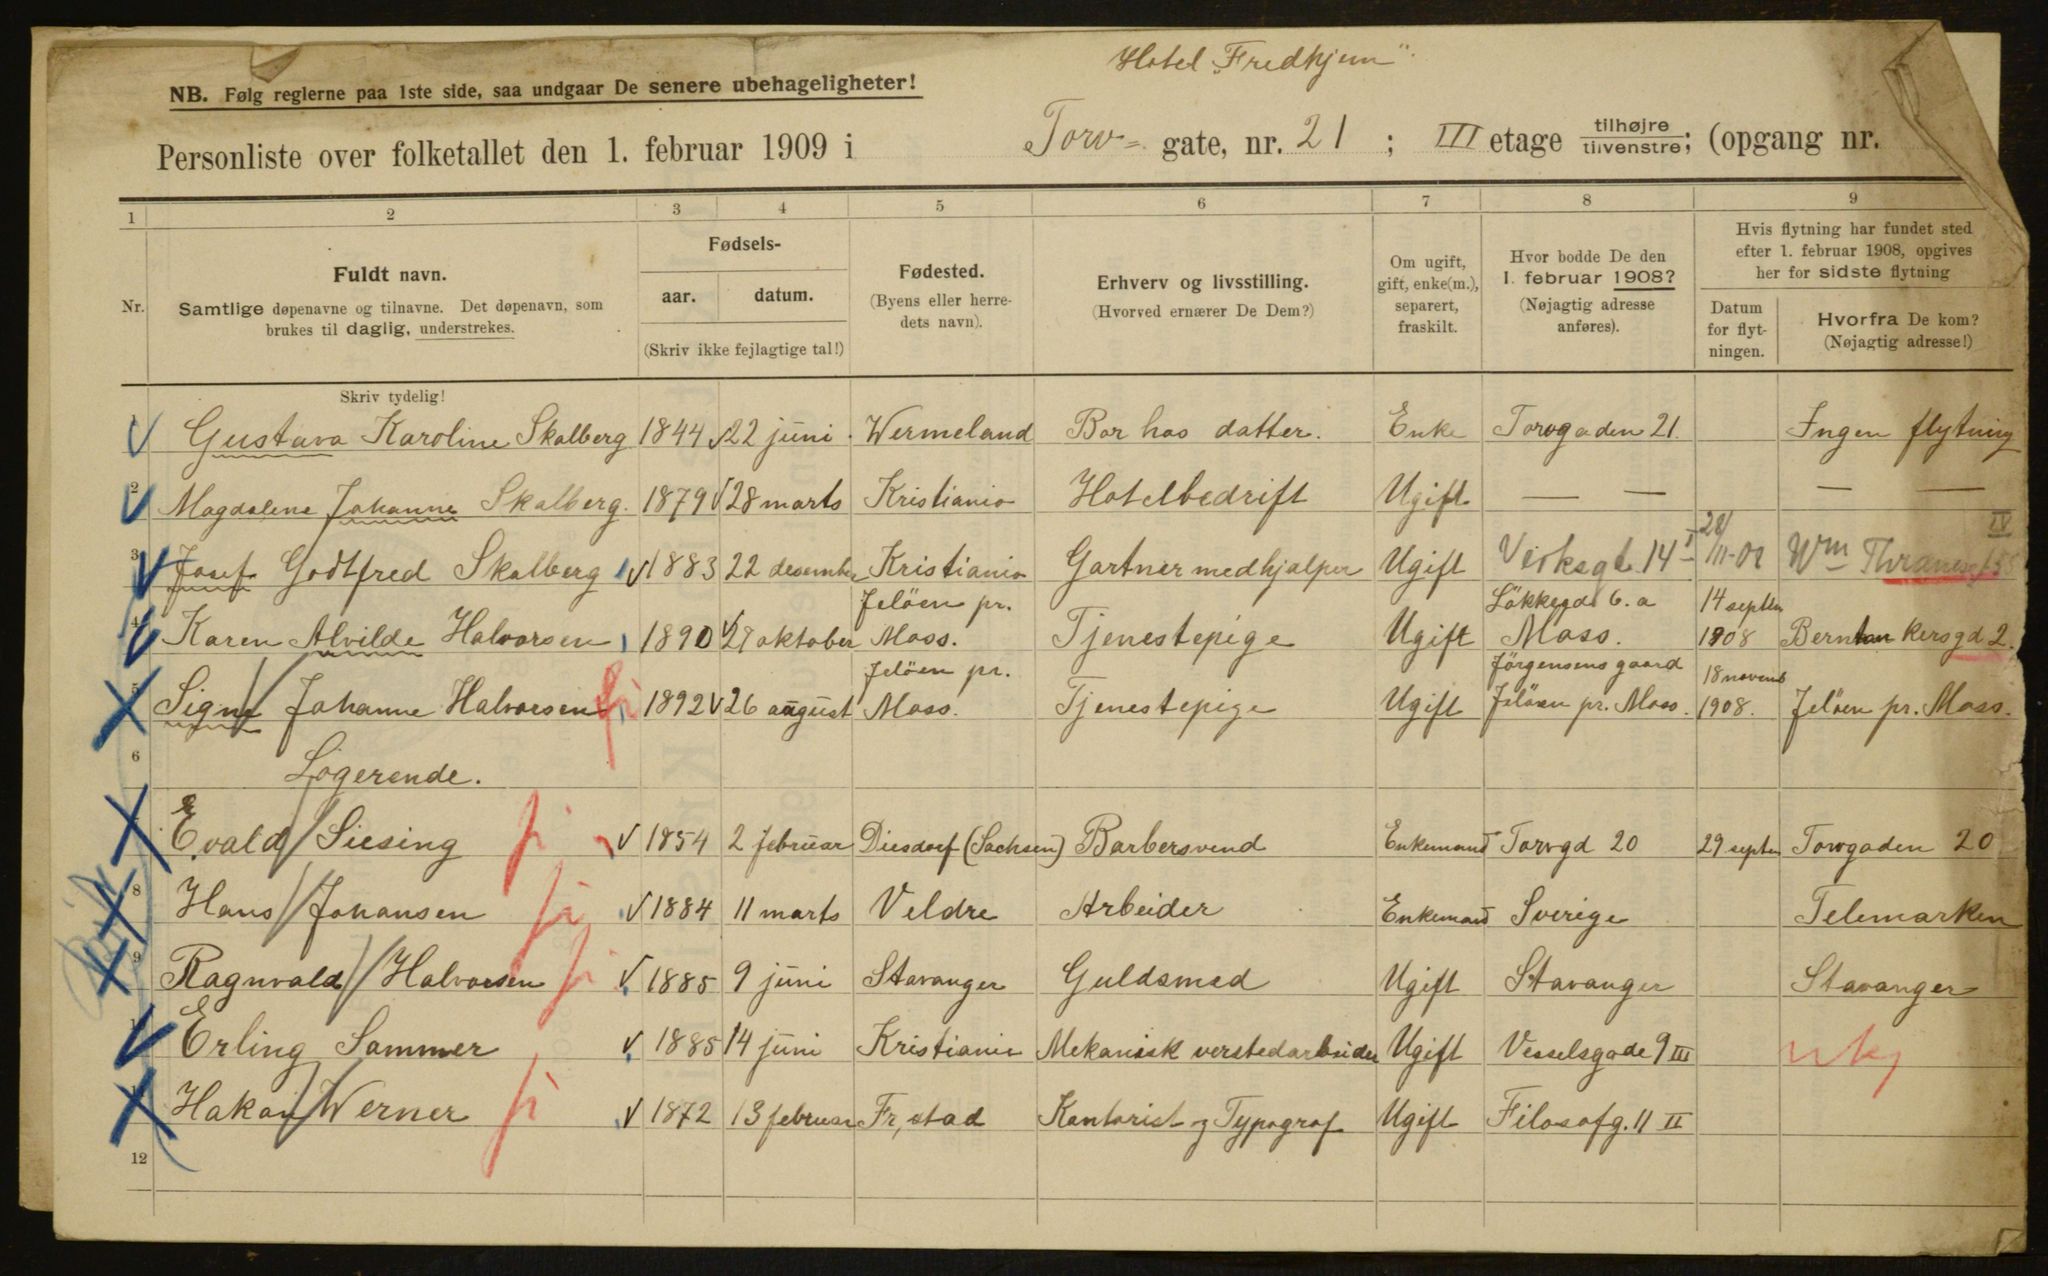 Hotel „Fredhjem“.
NB. Følg reglerne paa 1ste side, saa undgaar De senere ubehageligheter!
Personliste over folketallet den 1. februar 1909 i Torv- gate, nr. 21 ; III etage tilhøjre tilvenstre; (opgang nr.
1 2 3 4 5 6 7 8 9
Nr.
Fuldt navn.
Samtlige døpenavne og tilnavne. Det døpenavn, som
brukes til daglig, understrekes.
Fødsels-
aar. datum.
(Skriv ikke fejlagtige tal!)
Fødested.
(Byens eller herre-
dets navn).
Erhverv og livsstilling.
(Hvorved ernærer De Dem?)
Om ugift,
gift, enke(m.),
separert,
fraskilt.
Hvor bodde De den
1. februar 1908?
(Nøjagtig adresse
anføres).
Hvis flytning har fundet sted
efter 1. februar 1908, opgives
her for sidste flytning
Datum
for flyt-
ningen.
Hvorfra De kom?
(Nøjagtig adresse!)
Skriv tydelig!
1 Gustava Karoline Skalberg 1844 22 juni. Wermeland Bor hos datter. Enke Torvgaden 21. Ingen flytning
2 Magdalene Johanne Skalberg. 1879 28 marts Kristiania Hotelbedrift Ugift — — — —
3 Josef Godtfred Skalberg 1883 22 desember Kristiania Gartnermedhjælper Ugift 14 Wm Thranesg. IV
4 Karen Alvilde Halvorsen 1890 27 oktober Jeløen pr. Moss. Tjenestepige Ugift Løkkegd. 6. a Moss. 14 septbr 1908 Berntankersgd 2.
5 Signe Johanne Halvorsen 1892 26 august Jeløen pr. Moss. Tjenestepige Ugift Jørgensens gaard Jeløen pr. Moss. 18 novemb 1908. Jeløen pr. Moss.
6 Logerende.
Evald Siesing 1854 2 februar Diesdorf (Sachsen) Barbersvend Enkemand Torvgd 20 29 septbr Torvgaden 20
8 Hans Johansen 1884 11 marts Veldre Arbeider Enkemand Sverige Telemarken
9 Ragnvald Halvorsen 1885 9 juni Stavanger Guldsmed Ugift Stavanger Stavanger
Erling Sommer 1885 14 juni Kristiania Mekanisk verstedarbeider Ugift Vesselsgade 9 III
Hakon Werner 1872 13 februar Fr,stad Kontorist og Typograf Ugift Filosofg. 11 II
12